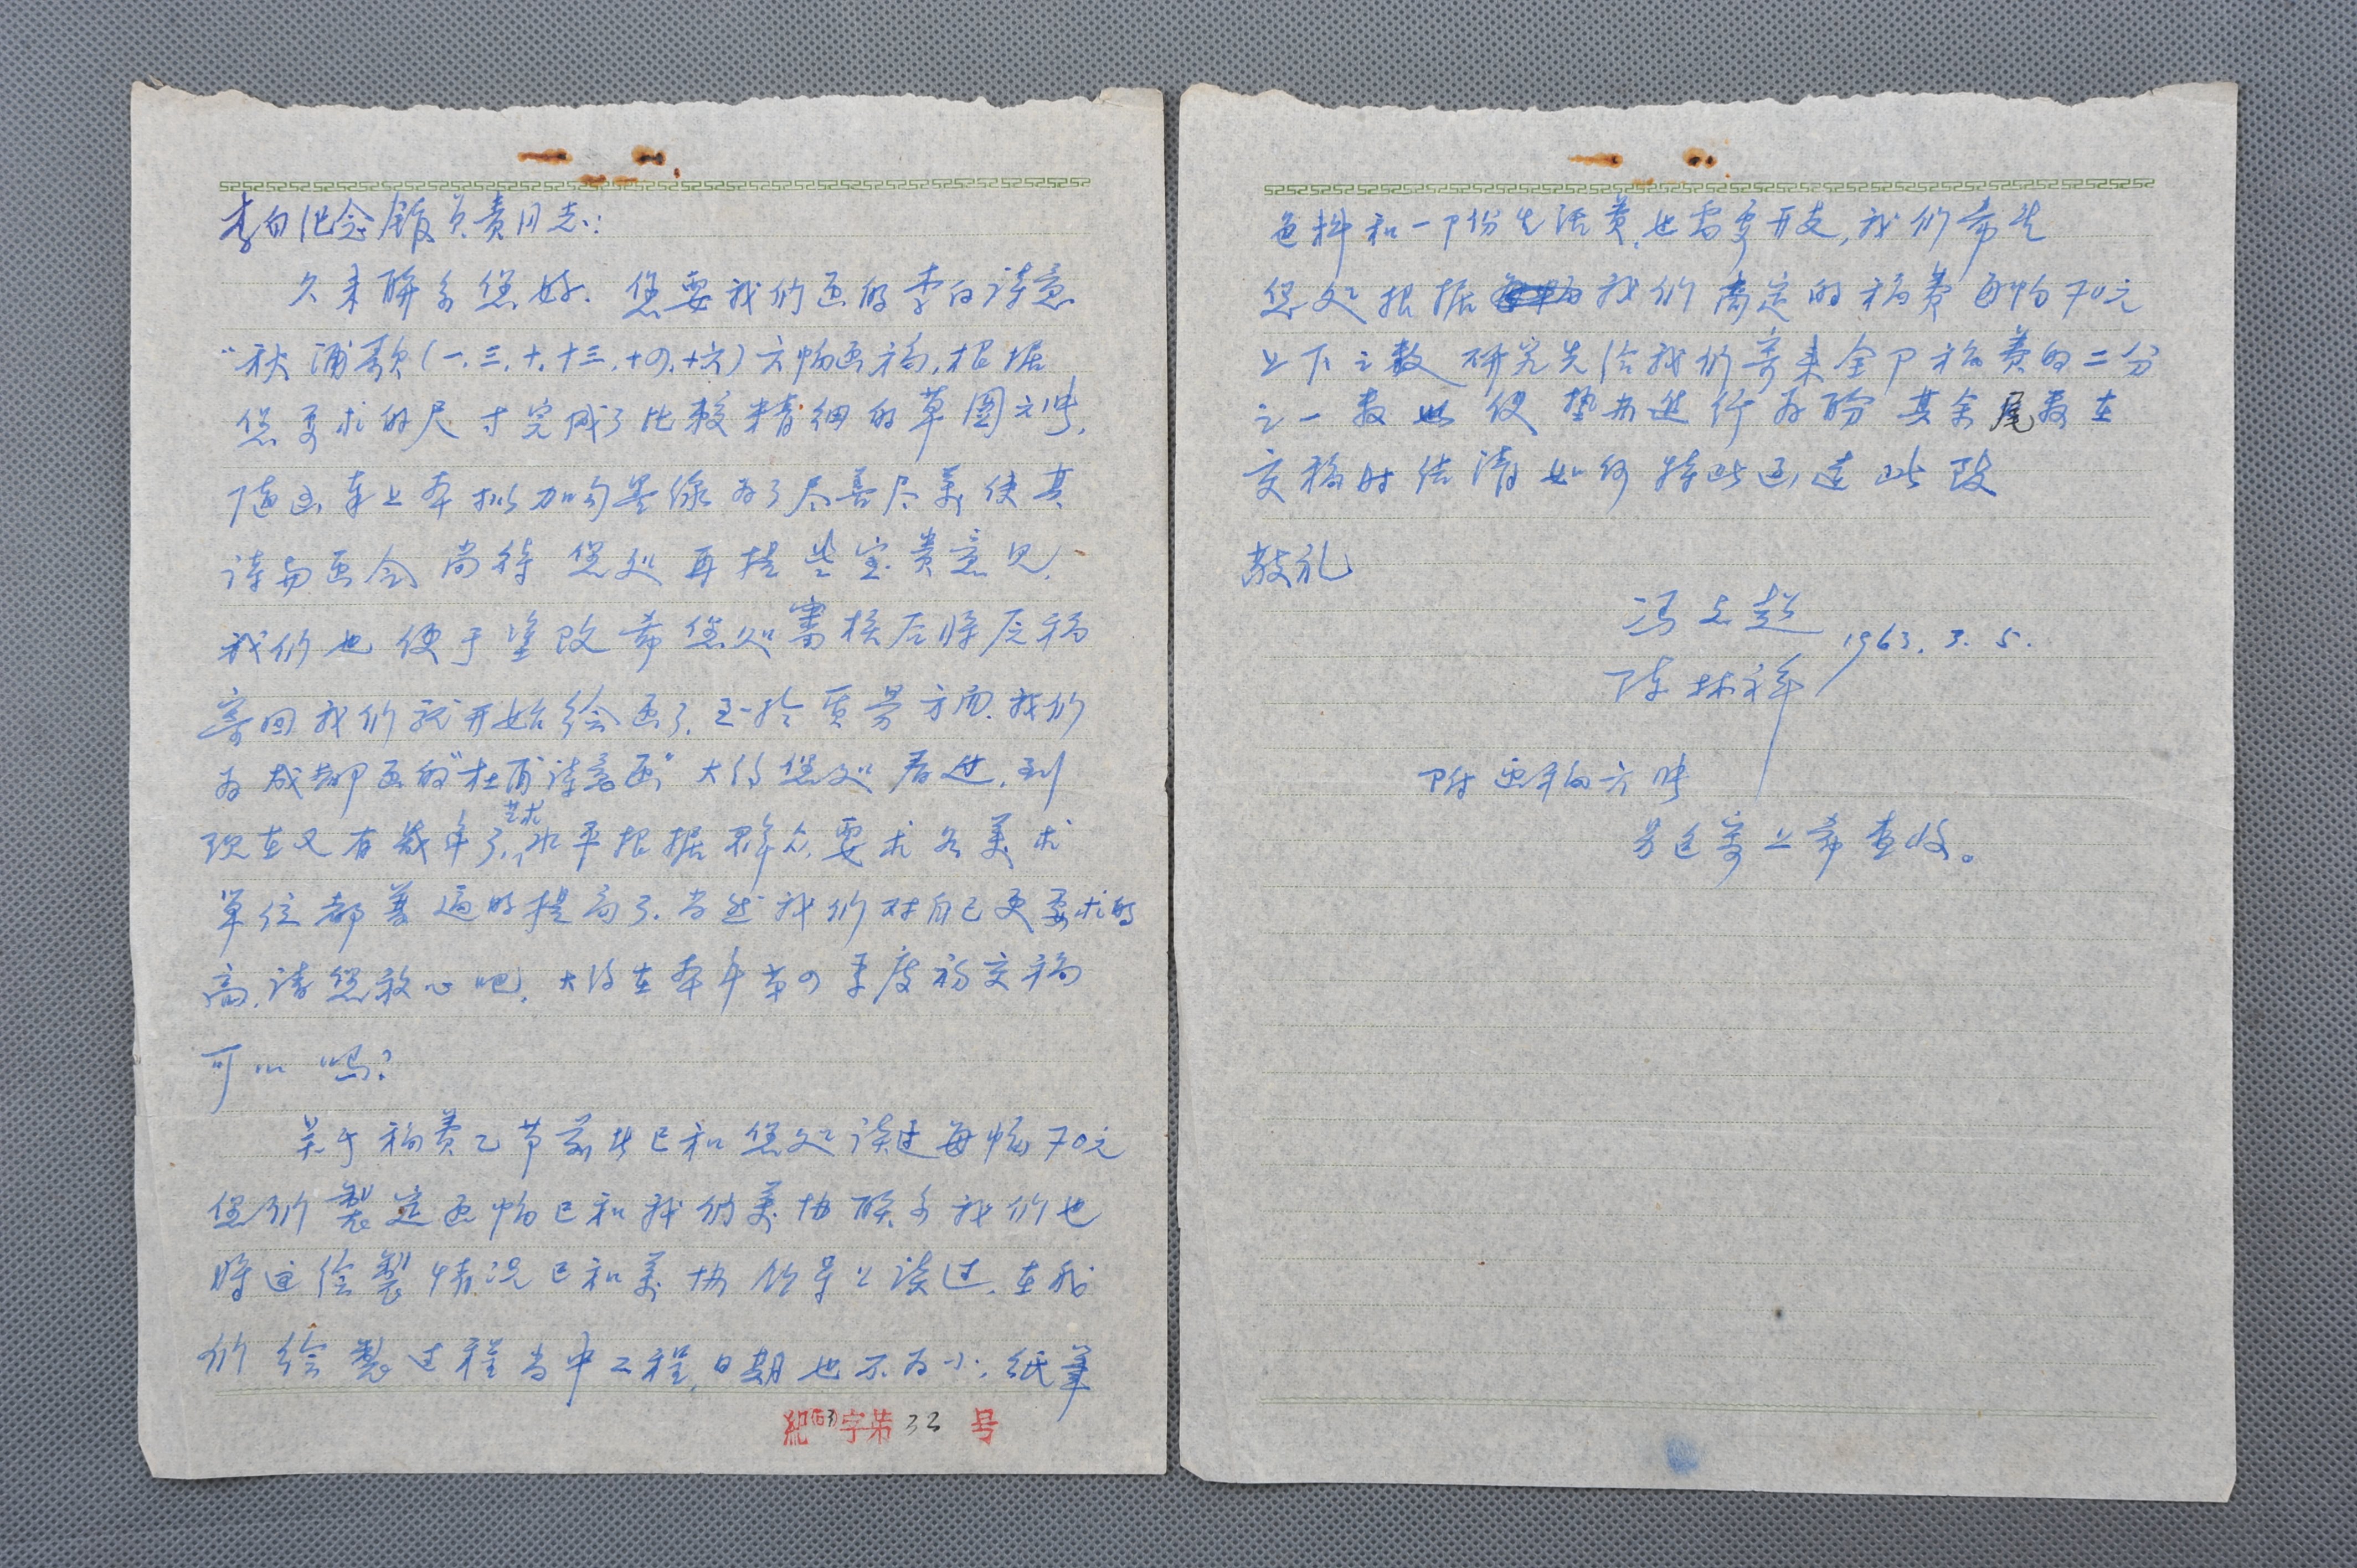 李白纪念馆负责同志:
久未联系您好. 您要我们画的李白诗意
"秋浦歌(一.三.十.十三.十四.十六)六幅画稿,根据
您要求的尺寸完成了比较精细的草图六张,
随函奉上本拟加勾墨线为了尽善尽美使其
诗与画合尚待您处再提些宝贵意见,
我们也便于修改希您处审核后将原稿
寄回我们就开始绘画了.至于质量方面.我们
为成都画的"杜甫诗意画"大约您处看过.到
现在又有几年了,艺术水平根据群众要求各美术
单位都普遍的提高了.当然我们对自己更要求的
高.请您放心吧,大约在本年第四季度初交稿
可以吗?
关于稿费乙节前此已和您处谈过每幅70元
您们制定画幅已和我们美协联系我们也
将这绘製情况已和美协领导上谈过.在我
们绘製过程当中工程,日期也不为小.纸笔
紀(63)字第33号
色料和一卩份生活费,也需要开支,我们希望
您处根据我们商定的稿费每幅70元
上下之数研究先给我们寄来全卩稿费的二分
之一数以便垫办进行为盼其余尾数在
交稿时结清如何特此函达此致
敬礼
冯志超
1963.3.5.
陈林祥
附画稿六张
另包寄上希查收。